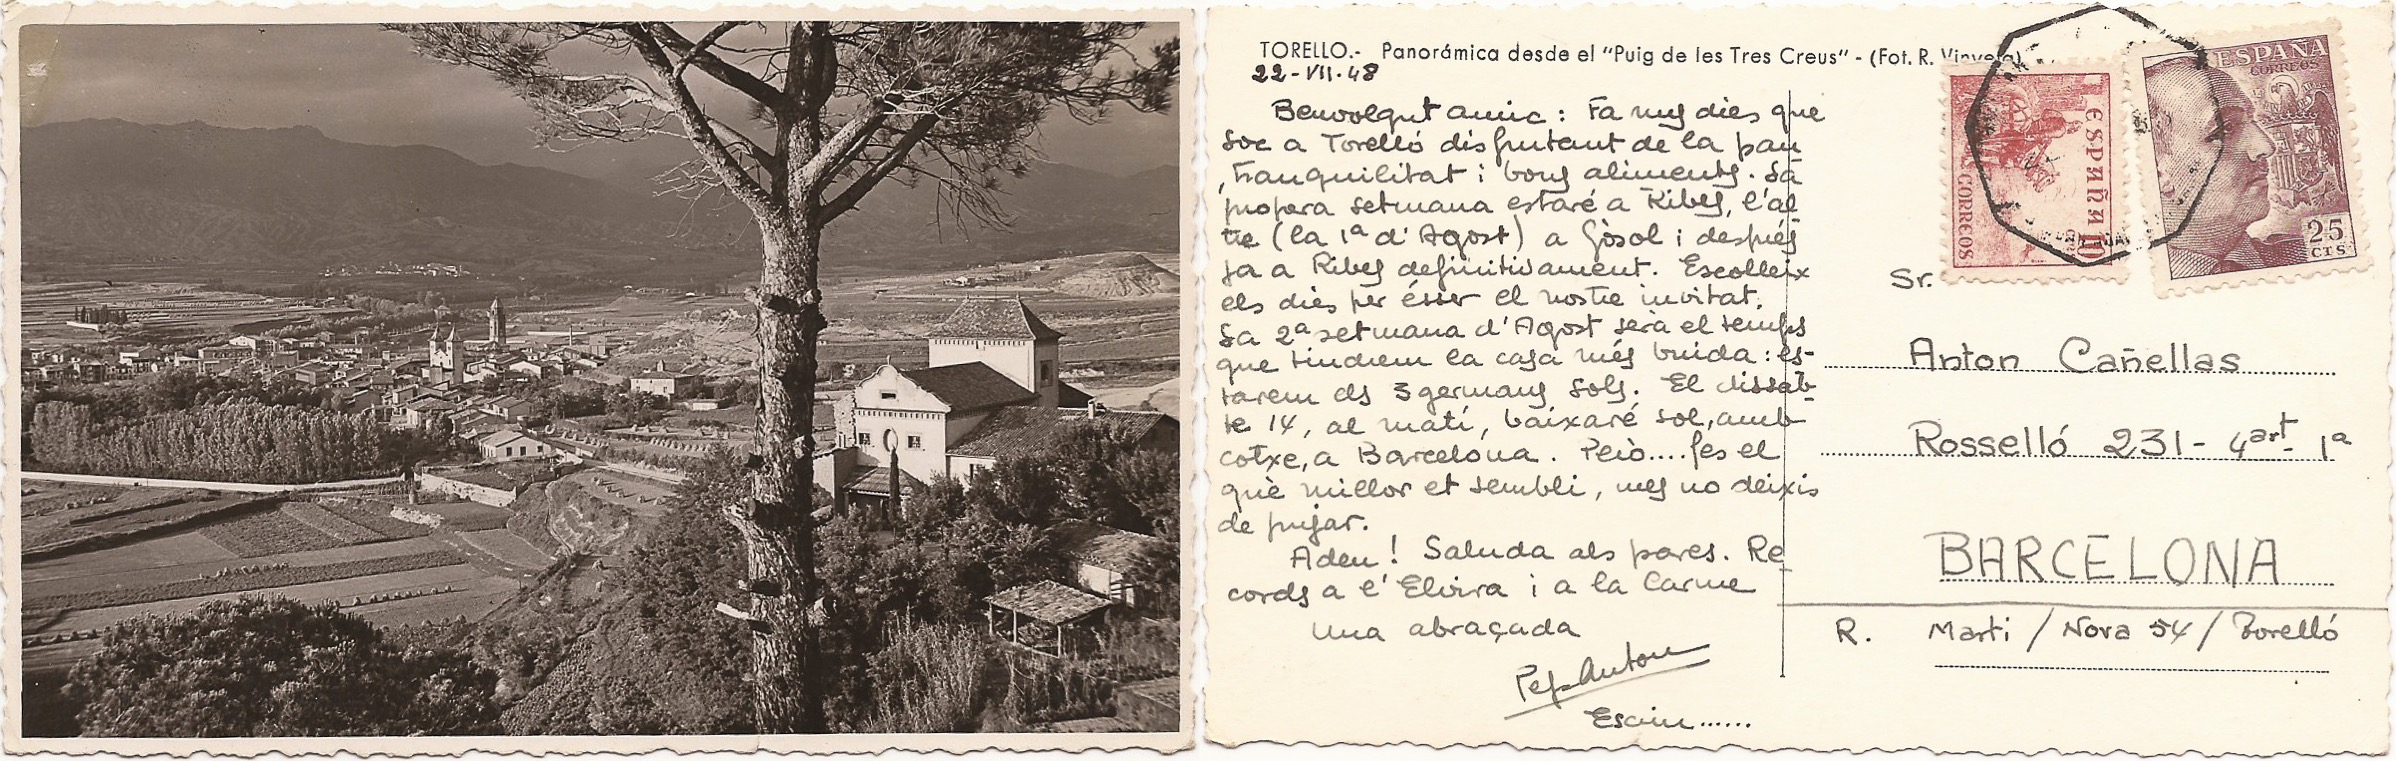 TORELLO.- Panorámica desde el "Puig de les Tres Creus" - (Fot. R. Vinyeta)
22-VII-48
Benvolgut amic: Fa nys dies que
soc a Torelló disfrutant de la pau
, tranquilitat i bons aliments. La
propera setmana estaré a Ribes, l'al
tre (la 1ª d'Agost) a Gósol i després
ja a Ribes definitivament. Escolleix
els dies per ésser el nostre invitat.
La 2ª setmana d'Agost serà el temps
que tindrem la casa més buida: es-
tarem els 3 germans sols. El dissab-
te 14, al matí, baixaré sol, amb
cotxe, a Barcelona. Però.... fes el
què millor et sembli, mes no deixis
de pujar.
Adeu! Saluda als pares. Re
cords a l'Elvira i a la Carme
Una abraçada
Pep-Anton
Escriu......
ESPAÑA
CORREOS
10
ESPAÑA
CORREOS
25
CTS
Sr.
Anton Cañellas
Rosselló 231 - 4art 1ª
BARCELONA
R. Marti / Nova 54 / Torelló